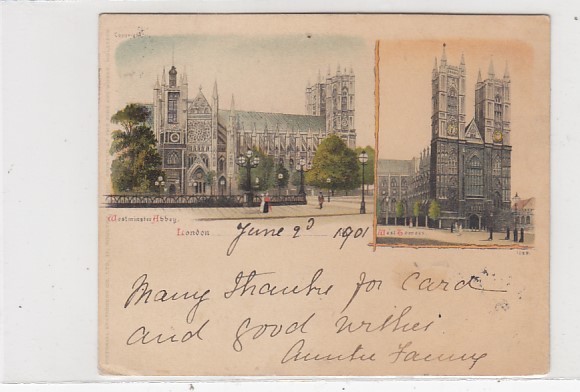 Copyright
Westminster Abbey.
London
West Towers.
June 2d 1901
Many Thanks for card
and good wishes
Auntie Fanny